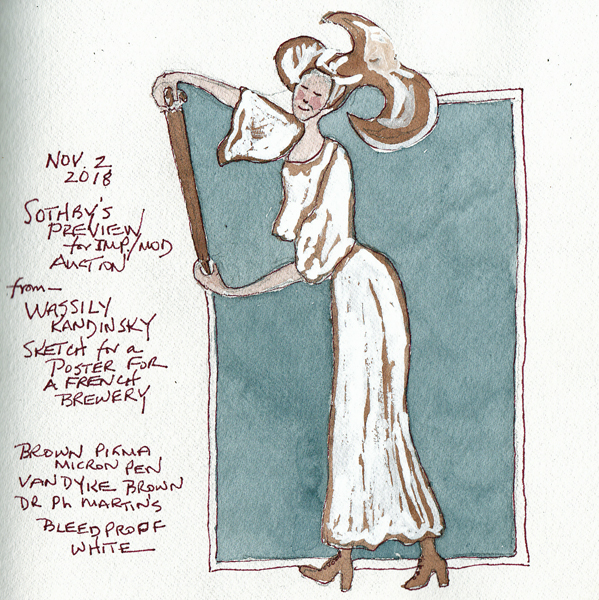 NOV. 2
2018
SOTHBY'S
PREVIEW
for IMP/MOD
AUCTION
from—
WASSILY
KANDINSKY
SKETCH for a
POSTER FOR
A FRENCH
BREWERY
BROWN PIGMA
MICRON PEN
VANDYKE BROWN
DR PH MARTIN'S
BLEEDPROOF
WHITE